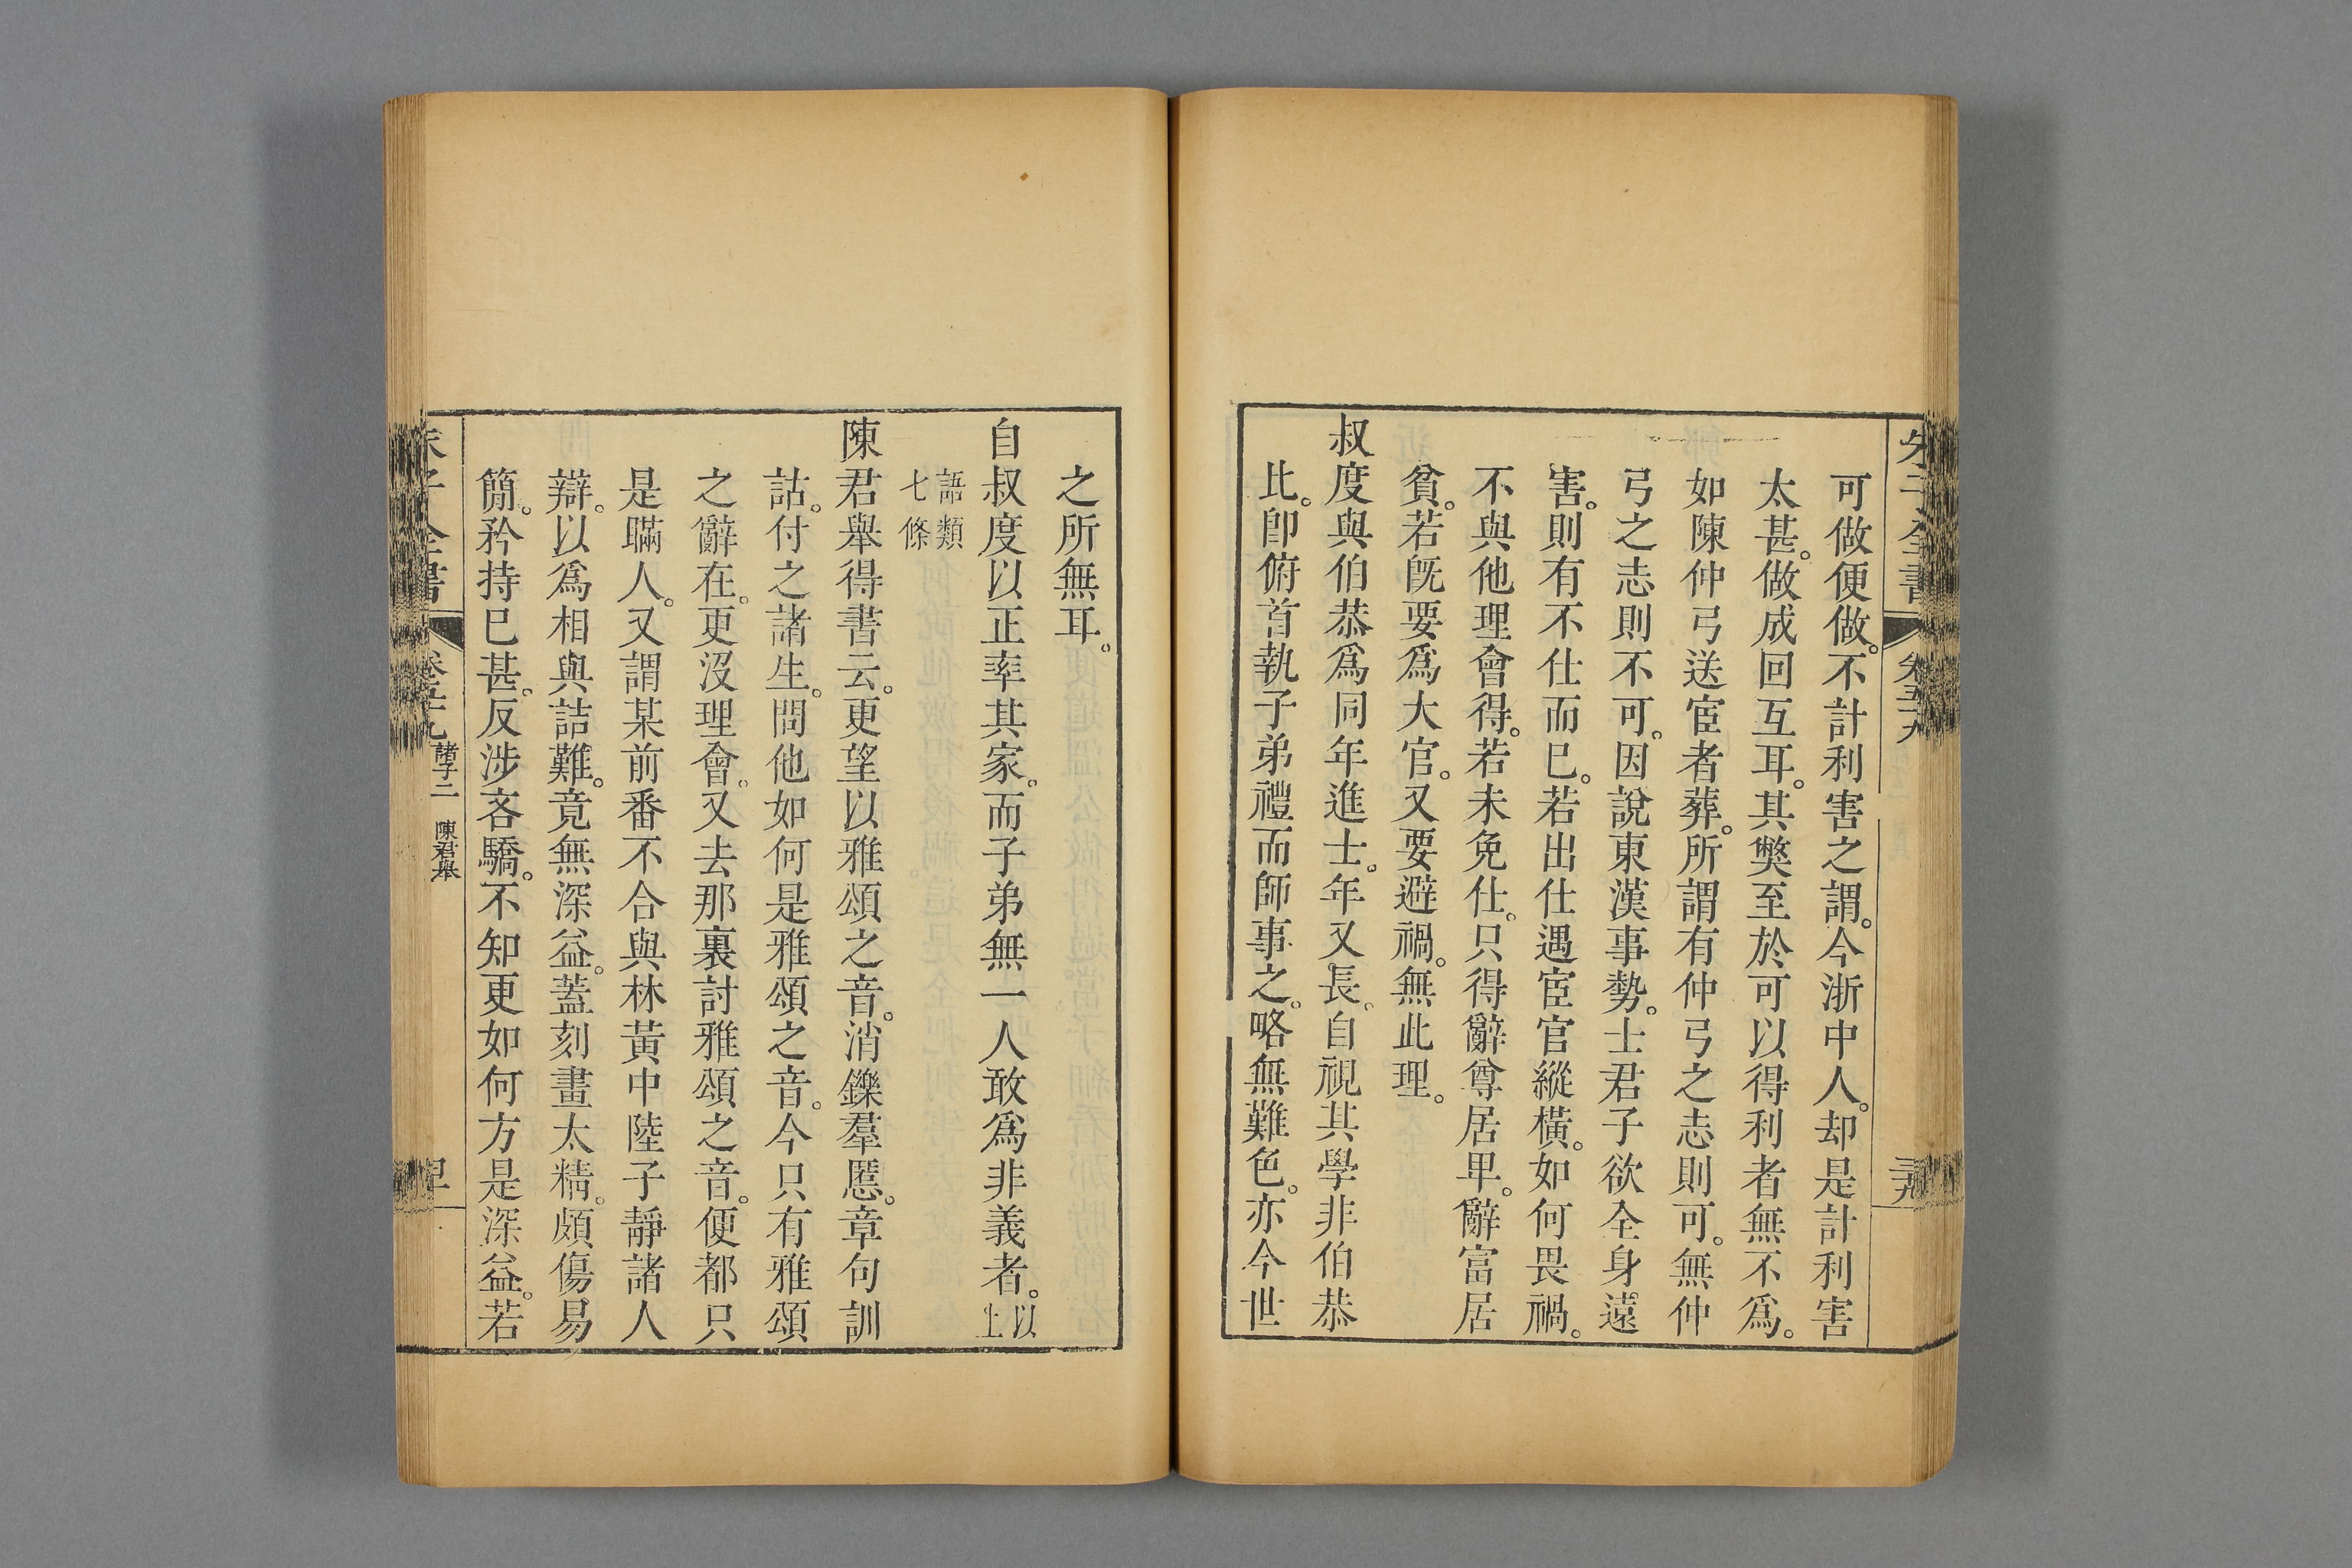 可做便做。不計利害之謂。今浙中人。却是計利害
太甚。做成回互耳。其獘至於可以得利者無不爲。
如陳仲弓送宦者葬。所謂有仲弓之志則可。無仲
弓之志則不可。因說東漢事勢。士君子欲全身遠
害。則有不仕而已。若出仕遇宦官縱橫。如何畏禍。
不與他理會得。若未免仕。只得辭尊居卑。辭富居
貧。若旣要爲大官。又要避禍。無此理。
叔度與伯恭爲同年進士。年又長。自視其學非伯恭
比。卽俯首執子弟禮而師事之。略無難色。亦今世
之所無耳。
自叔度以正率其家。而子弟無一人敢爲非義者。以上
語類七條
陳君舉得書云。更望以雅頌之音。消鑠羣慝。章句訓
詁。付之諸生。問他如何是雅頌之音。今只有雅頌
之辭在。更沒理會。又去那裏討雅頌之音。便都只
是瞞人。又謂某前番不合與林黃中陸子靜諸人
辯。以爲相與詰難。竟無深益。蓋刻畫太精。頗傷易
簡。矜持已甚。反涉吝驕。不知更如何方是深益。若
諸子二 陳君舉